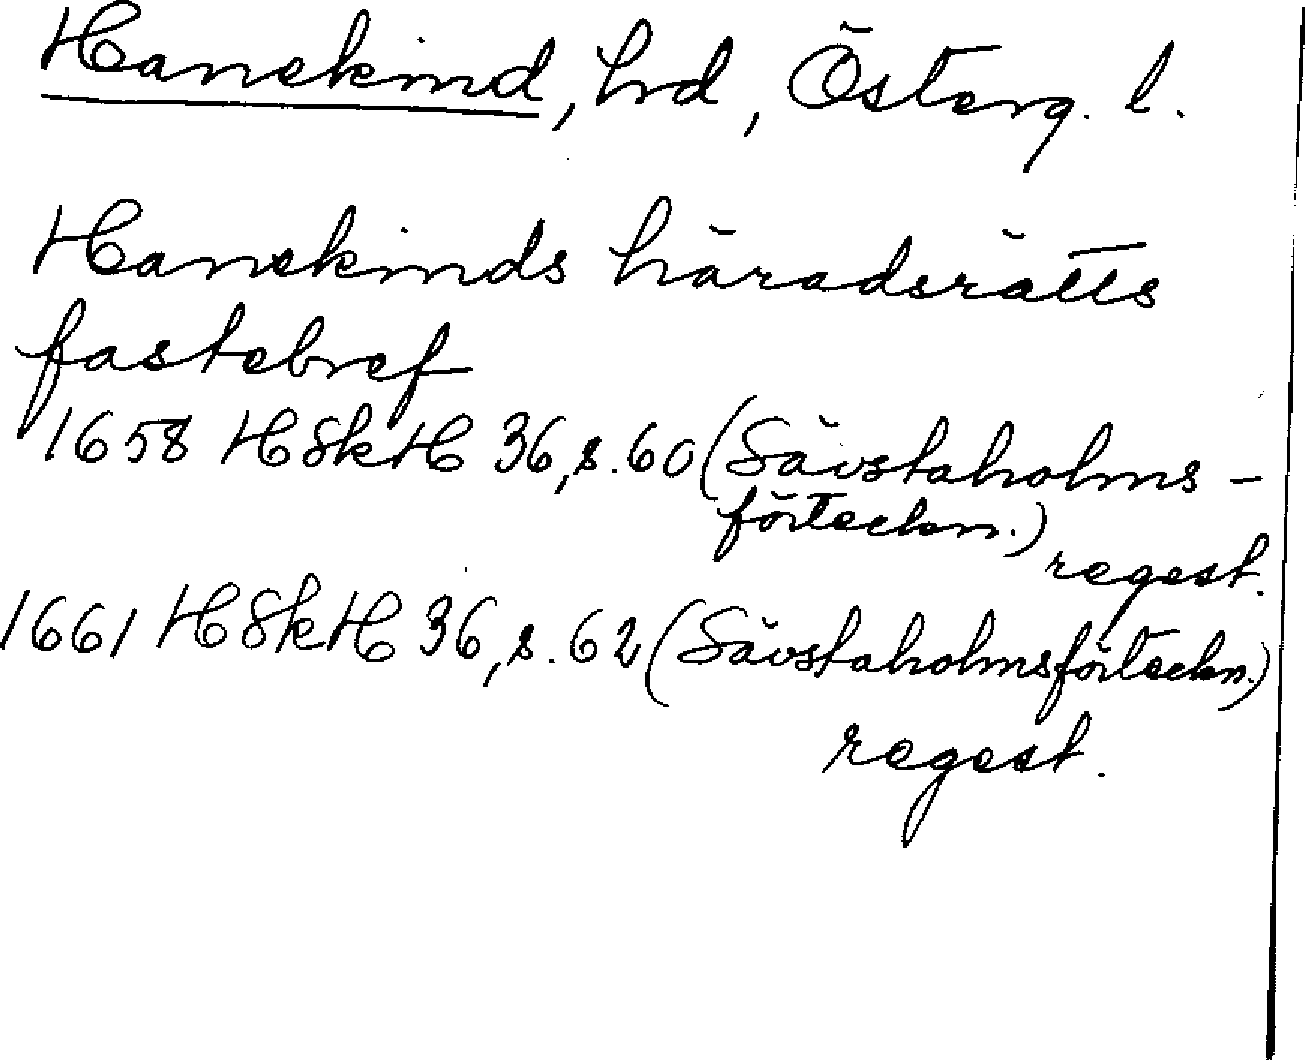 Hanekind, hrd, Österg. l.
Hanekinds häradsrätts
fastebref
1658 HSkH 36, s. 60 (Sävstaholms-
förteckn.)
regest.
1661 HSkH 36, s. 62 (Sävstaholmsförteckn.)
regest.